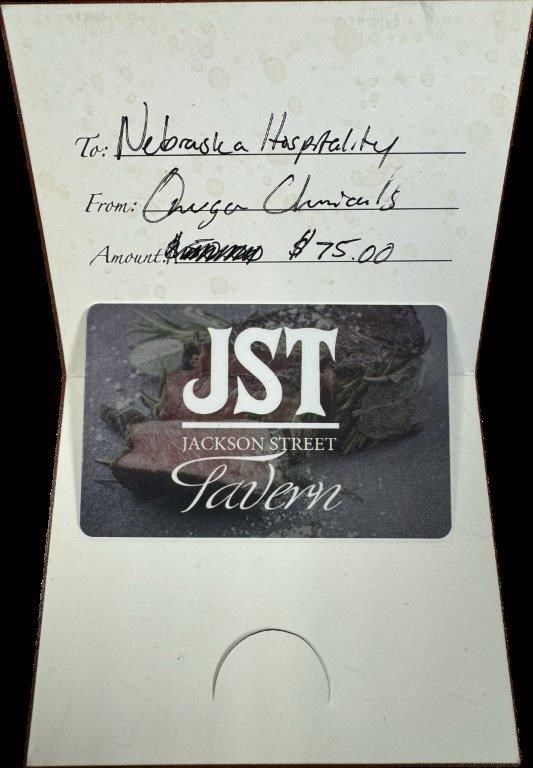 To: Nebraska Hospitality
From: Omega Chemicals
Amount: $75.00
JST
JACKSON STREET
Tavern